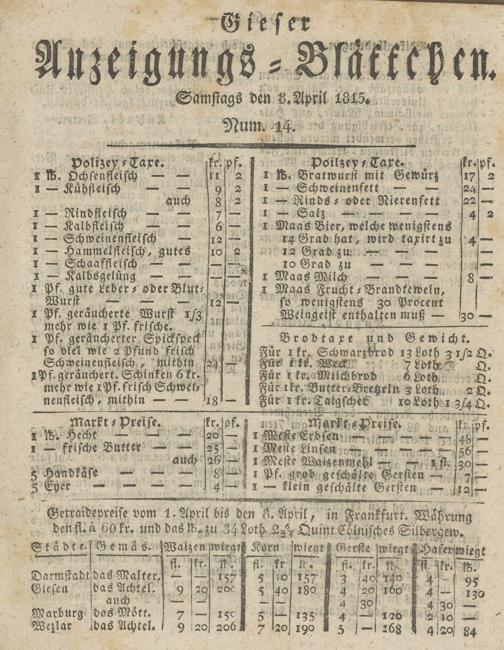 Gieser
Anzeigungs-Blättchen.
Samstags den 8. April 1815.
Num. 14.
Polizey-Taxe. kr. pf.
1 lb. Ochsenfleisch — — 11 2
1 — Kühfleisch — — 9 2
auch 8 2
1 — Rindfleisch — — 7 —
1 — Kalbfleisch — — 6 —
1 — Schweinenfleisch — 12 —
1 — Hammelfleisch, gutes 10 2
1 — Schaaffleisch — —
1 — Kalbsgelüng — —
1 Pf. gute Leber- oder Blut-
Wurst — — — 12 —
1 Pf. geräucherte Wurst 1/3
mehr wie 1 Pf. frische.
1 Pf. geräucherter Spickspeck
so viel wie 2 Pfund frisch
Schweinenfleisch, mithin 24 —
1 Pf. geräuchert. Schinken 6 kr.
mehr wie 1 Pf. frisch Schwei-
nenfleisch, mithin — — 18 —
Poilzey-Taxe. kr. pf.
1 lb. Bratwurst mit Gewürz 17 2
1 — Schweinenfett — — 24 —
1 — Rinds- oder Nierenfett 22 —
1 — Salz — — — 4 —
1 Maas Bier, welche wenigstens
14 Grad hat, wird taxirt zu 4 —
12 Grad zu — — —
10 Grad zu — — —
1 Maas Milch — — — 8 —
1 Maas Frucht-Brandtewein,
so wenigstens 30 Procent
Weingeist enthalten muß — 30 —
Brodtaxe und Gewicht.
Für 1 kr. Schwarzbrod 13 Loth 3 1/2 Q.
Für 1 kr. Weck 7 Loth Q.
Für 1 kr. Milchbrod 6 Loth Q.
Für 1 kr. Butter-Bretzeln 3 Loth 2 Q.
Für 1 kr. Taigschet 10 Loth 1 3/4 Q.
Markt-Preise. kr. pf.
1 lb. Hecht — — — 20 —
1 — frische Butter — — 25 —
auch 26 —
5 Handkäse — — — 8 —
5 Eyer — — — 4 —
Markt-Preise. kr. pf.
1 Meste Erbsen — — — 48 —
1 Meste Linsen — — — 56 —
1 Meste Waizenmehl — — 1 fl. 30 —
1 Pf. grob geschälte Gersten — 7 —
1 — klein geschälte Gersten — 12 —
Getraidepreise vom 1. April bis den 8. April, in Frankfurt. Währung
den fl. à 60 kr. und das lb. zu 34 Loth Quint Cölnisches Silbergew.
Städte. Gemäs. Waizen wiegt Korn wiegt Gerste wiegt Hafer wiegt
fl. kr. lb. fl. kr. lb. fl. kr. lb. fl. kr. lb.
Darmstadt das Malter. — — 157 5 10 157 3 40 140 4 — 95
Giesen das Achtel. 9 20 206 5 40 180 4 20 160 4 — 130
auch — — — — 4 30 4 30 —
Marburg das Mött. 7 — 150 5 — 135 4 — 120 2 10 —
Wetzlar das Achtel. 9 20 206 7 20 190 5 — 168 4 20 84